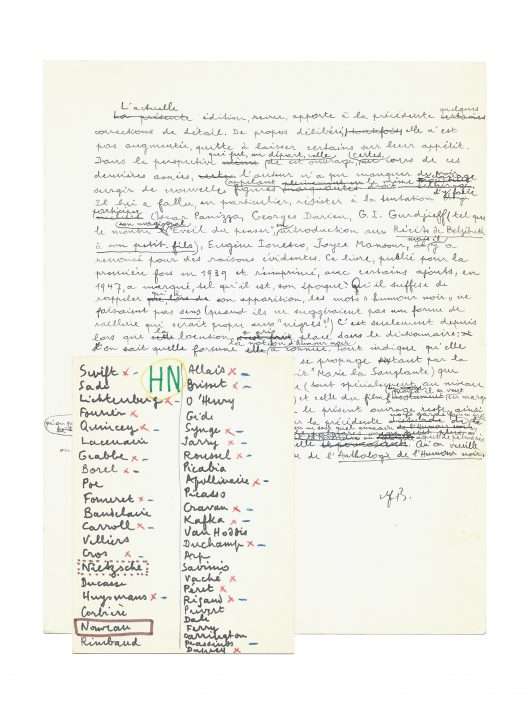 L'actuelle
La présente édition, revue, apporte à la précédente quelques certaines
corrections de détail. De propos délibéré, toutefois elle n'est
pas augmentée, quitte à laisser certains sur leur appétit.
Dans la perspective qui fut, au départ, celle de cet ouvrage, certes, au cours de ces
dernières années, l'auteur n'a pu manquer de voir
surgir de nouvelles figures
Il lui a fallu, en particulier, résister à la tentation d'y
participer (Oscar Panizza, Georges Darien, G. I. Gurdjieff tel que
le montre son magistral "Éveil du penser", introduction aux Récits de Belzébuth
à son petit fils), Eugène Ionesco, Joyce Mansour, mais il y a
renoncé pour des raisons évidentes. Ce livre, publié pour la
première fois en 1939 et réimprimé, avec certains ajouts, en
1947, a marqué, tel qu'il est, son époque. Qu'il suffise de
rappeler qu'à son apparition, les mots "humour noir", ne
faisaient pas sens (quand ils ne suggéraient pas une forme de
raillerie qui serait propre aux "nègres"!) C'est seulement depuis
lors que la locution a pris place dans le dictionnaire:
on sait quelle fortune la notion d'humour noir a connue. Tout indique qu'elle
se propage tant par la
"Marie la Sanglante) que
(tout spécialement au niveau
et celle du film
le présent ouvrage
la précédente
Qu'on veuille
de l'Anthologie de l'Humour noir
A.B.
HN
Swift x –
Sade
Lichtenberg x –
Fourier x
Quincey x –
Lacenaire
Grabbe x –
Borel x –
Poe
Forneret x –
Baudelaire
Carroll x –
Villiers
Cros x –
Nietzsche
Ducasse
Huysmans x –
Corbière
Nouveau
Rimbaud
Allais x –
Brisset x –
O'Henry
Gide
Synge x –
Jarry x –
Roussel x –
Picabia
Apollinaire x –
Picasso
Cravan x –
Kafka x –
Van Hoddis
Duchamp x –
Arp
Savinio
Vaché x
Péret x
Rigaud x –
Prévert
Dali
Ferry
Carrington
Prassinos –
Duprey x